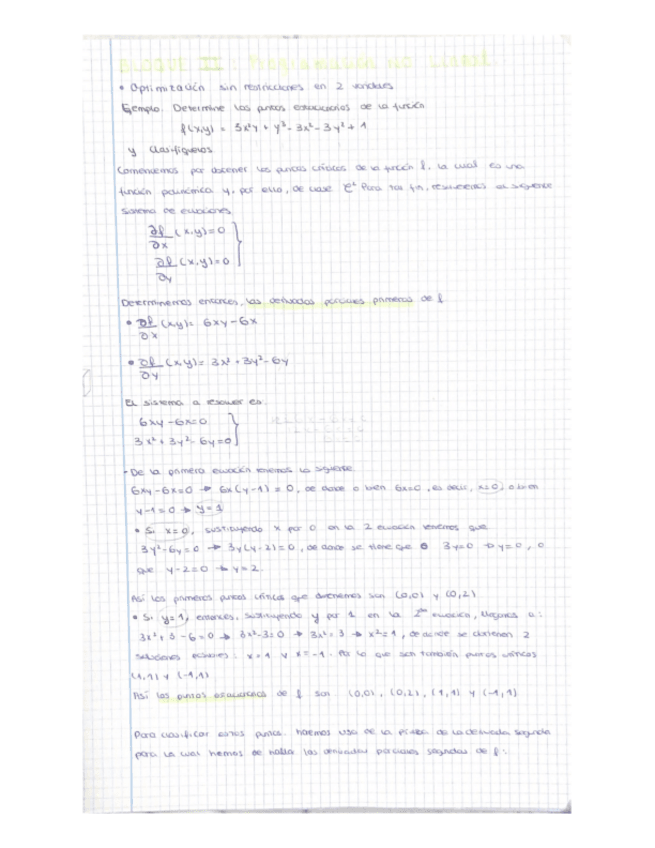 BLOQUE II: Programación no lineal
• Optimización sin restricciones en 2 variables
Ejemplo. Determine los puntos estacionarios de la función
f(x,y) = 3x²y + y³ - 3x² - 3y² + 1
y clasifíquelos
Comencemos por obtener los puntos críticos de la función f, la cual es una
función polinómica y, por ello, de clase C² Para tal fin, resolveremos el siguiente
sistema de ecuaciones
∂f/∂x (x,y)=0
∂f/∂y (x,y)=0
Determinemos entonces, las derivadas parciales primeras de f
• ∂f/∂x (x,y)= 6xy-6x
• ∂f/∂y (x,y)= 3x²+3y²-6y
El sistema a resolver es:
6xy-6x=0
3x²+3y²-6y=0
- De la primera ecuación tenemos lo siguiente
6xy-6x=0 → 6x(y-1)=0, de donde o bien 6x=0, es decir, x=0, o bien
y-1=0 → y=1
• Si x=0, sustituyendo x por 0 en la 2 ecuación tenemos que
3y²-6y=0 → 3y(y-2)=0, de donde se tiene que 3y=0 → y=0, o
que y-2=0 → y=2.
Así los primeros puntos críticos que obtenemos son (0,0) y (0,2)
• Si y=1, entonces, sustituyendo y por 1 en la 2ª ecuación, llegamos a:
3x²+3-6=0 → 3x²-3=0 → 3x²=3 → x²=1, de donde se obtienen 2
soluciones x=1 y x=-1. Por lo que son también puntos críticos
(1,1) y (-1,1)
Así los puntos estacionarios de f son (0,0), (0,2), (1,1) y (-1,1)
Para clasificar estos puntos. haremos uso de la prueba de la derivada segunda
para la cual hemos de hallar las derivadas parciales segundas de f: